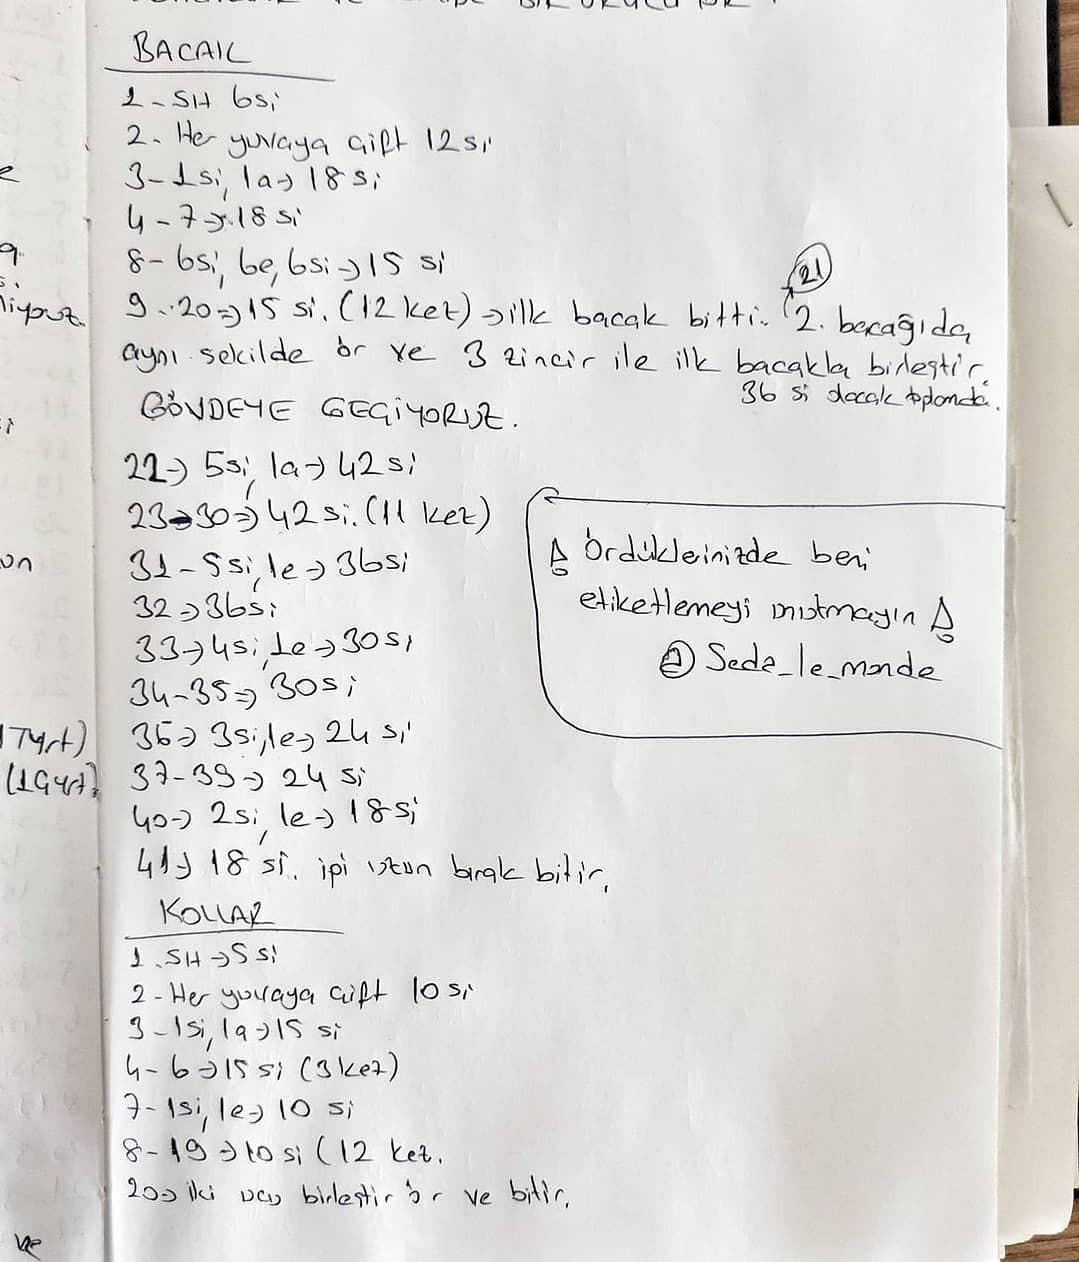 BACAK
1-SH 6si
2. Her yuvaya çift 12si
3-1si, 1a→18si
4-7→18 si
8-6si, 6e, 6si→15 si
21
9..20⇒15 si. (12 kez)→ilk bacak bitti. 2. bacağıda
aynı sekilde ör ve 3 zincir ile ilk bacakla birleştir.
36 si olacak toplamda.
GÖVDEYE GEÇİYORUZ.
22→ 5si, 1a→42si
23→30⇒42si. (11 kez)
31-5si, 1e→36si
32→36si
33→4si, 1e→30si
34-35⇒30si
36→3si, 1e→24 si
37-39→24 si
40→ 2si, 1e→18si
41→18 si. ipi uzun bırak bitir.
Ördüklerinizde beni
etiketlemeyi unutmayın
@ Seda_le_monde
KOLLAR
1.SH→5si
2-Her yuvaya çift 10si
3-1si, 1a→15 si
4-6→15 si (3kez)
7-1si, 1e→10 si
8-19→10si (12 kez.
20→iki ucu birleştir ör ve bitir.
17yrt)
(19yrt)
ve